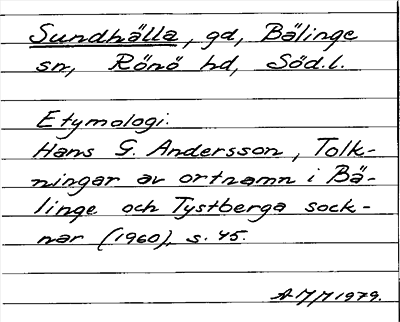 Sundhälla, gd, Bälinge
sn, Rönö hd, Söd.l.
Etymologi:
Hans G. Andersson, Tolk-
ningar av ortnamn i Bä-
linge och Tystberga sock-
nar (1960), s. 45.
1979.